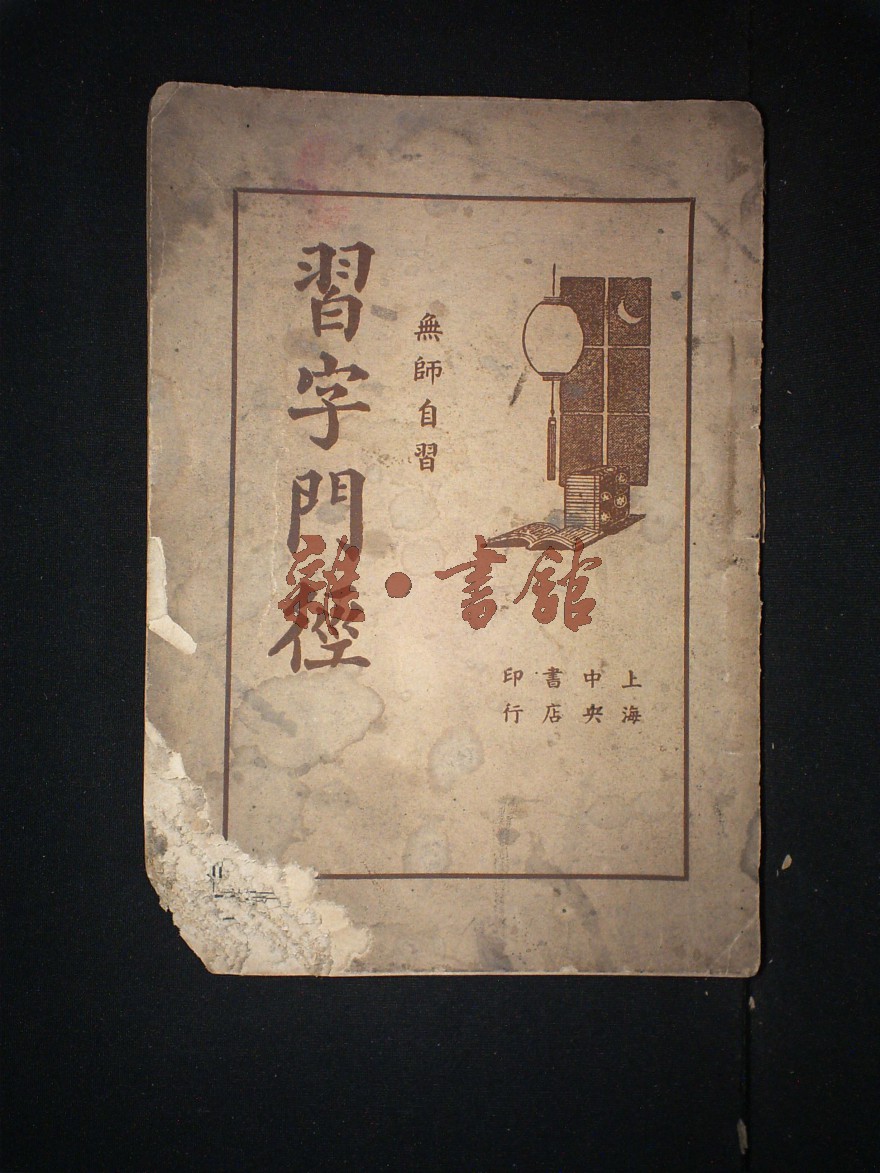 無師自習
習字門徑
上海
中央
書店
印行
雜·書館